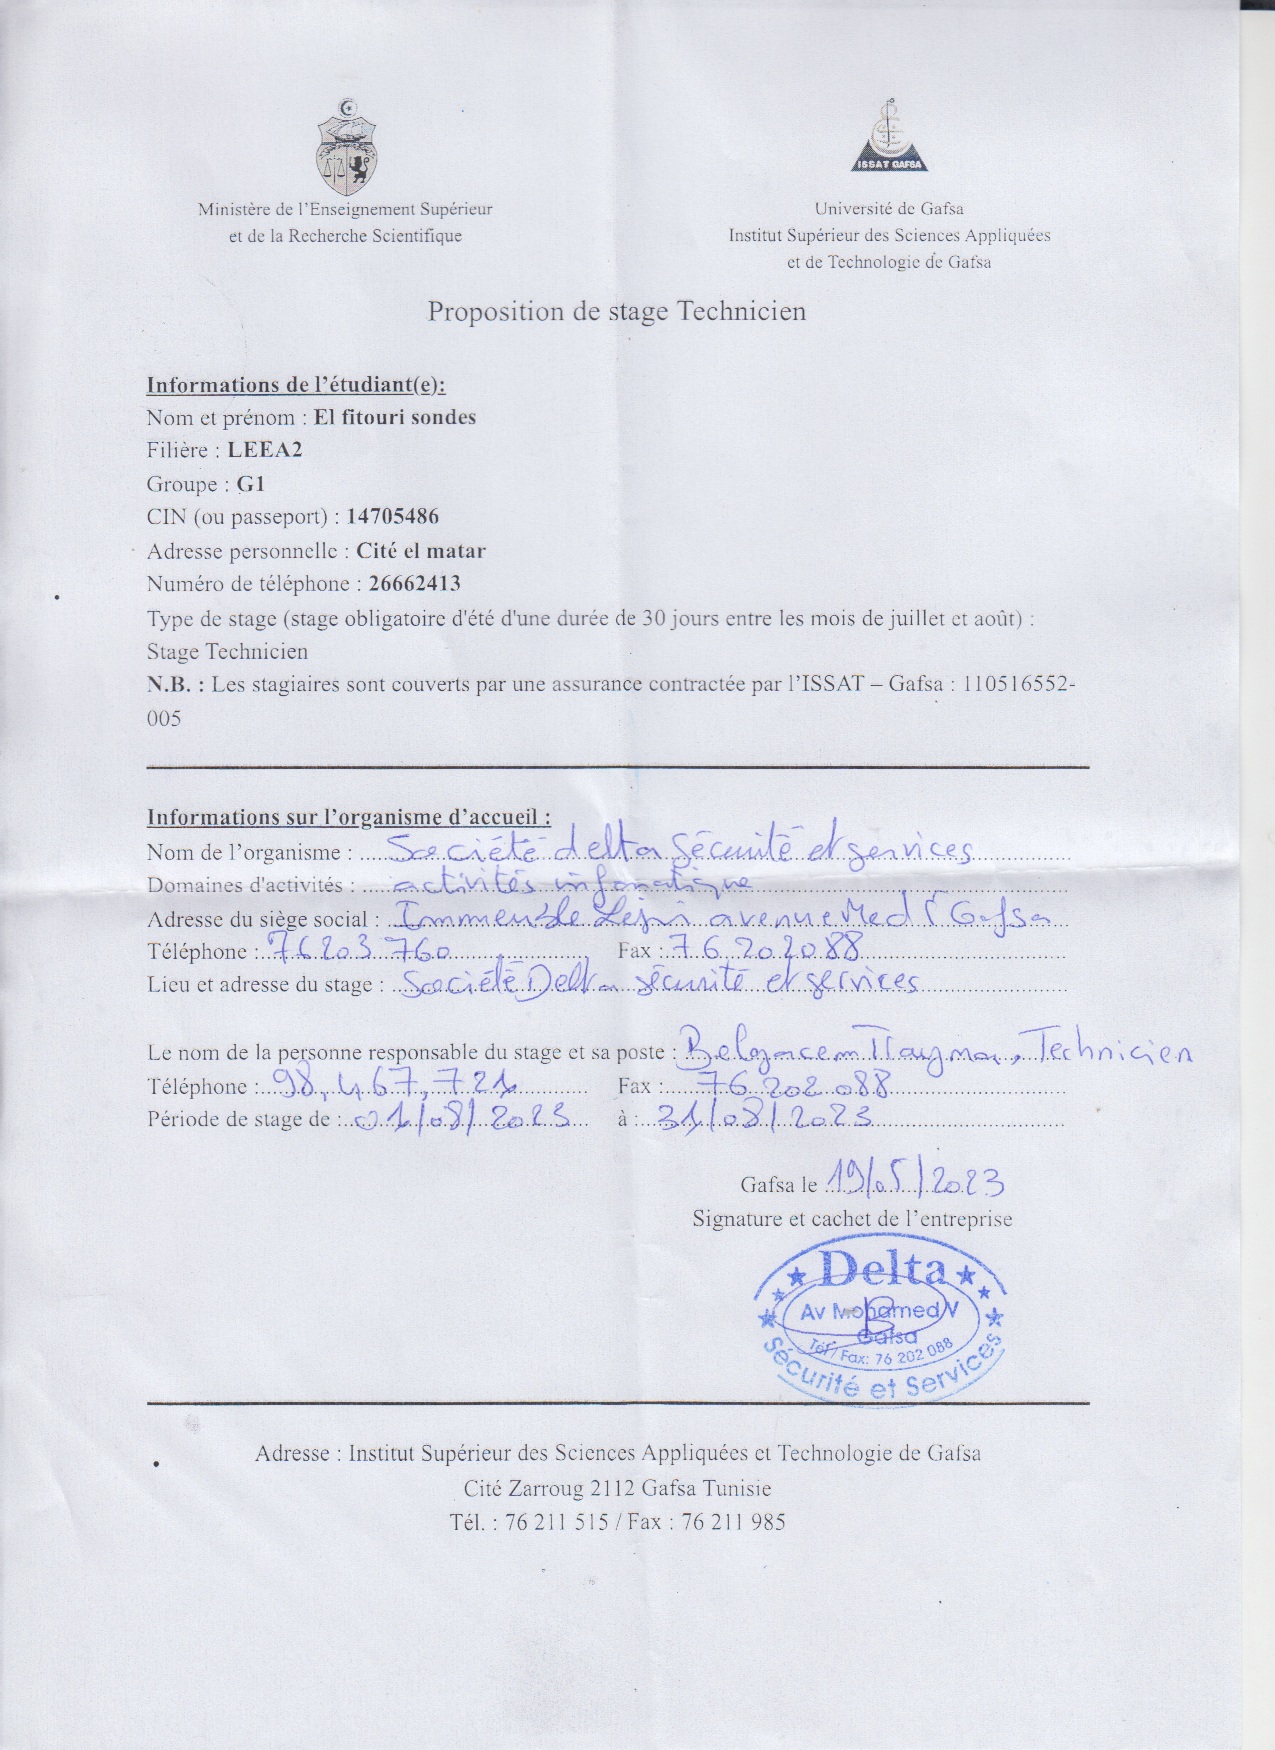 ISSAT GAFSA
Ministère de l'Enseignement Supérieur
et de la Recherche Scientifique
Université de Gafsa
Institut Supérieur des Sciences Appliquées
et de Technologie de Gafsa
Proposition de stage Technicien
Informations de l'étudiant(e):
Nom et prénom : El fitouri sondes
Filière : LEEA2
Groupe : G1
CIN (ou passeport) : 14705486
Adresse personnelle : Cité el matar
Numéro de téléphone : 26662413
Type de stage (stage obligatoire d'été d'une durée de 30 jours entre les mois de juillet et août) :
Stage Technicien
N.B. : Les stagiaires sont couverts par une assurance contractée par l'ISSAT – Gafsa : 110516552-
005
Informations sur l'organisme d'accueil :
Nom de l'organisme : Société delta Sécurité et services
Domaines d'activités : activités infomatique
Adresse du siège social : Immeuble avenue Med V Gafsa
Téléphone : 76 203 760 Fax : 76 202 088
Lieu et adresse du stage : Société Delta sécurité et services
Le nom de la personne responsable du stage et sa poste : Belgacem, Technicien
Téléphone : 98.467.721 Fax : 76 202 088
Période de stage de : 01/08/2023 à : 31/08/2023
Gafsa le 19/05/2023
Signature et cachet de l'entreprise
Delta
Av Mohamed V
Gafsa
Tél / Fax: 76 202 088
Sécurité et Services
Adresse : Institut Supérieur des Sciences Appliquées et Technologie de Gafsa
Cité Zarroug 2112 Gafsa Tunisie
Tél. : 76 211 515 / Fax : 76 211 985